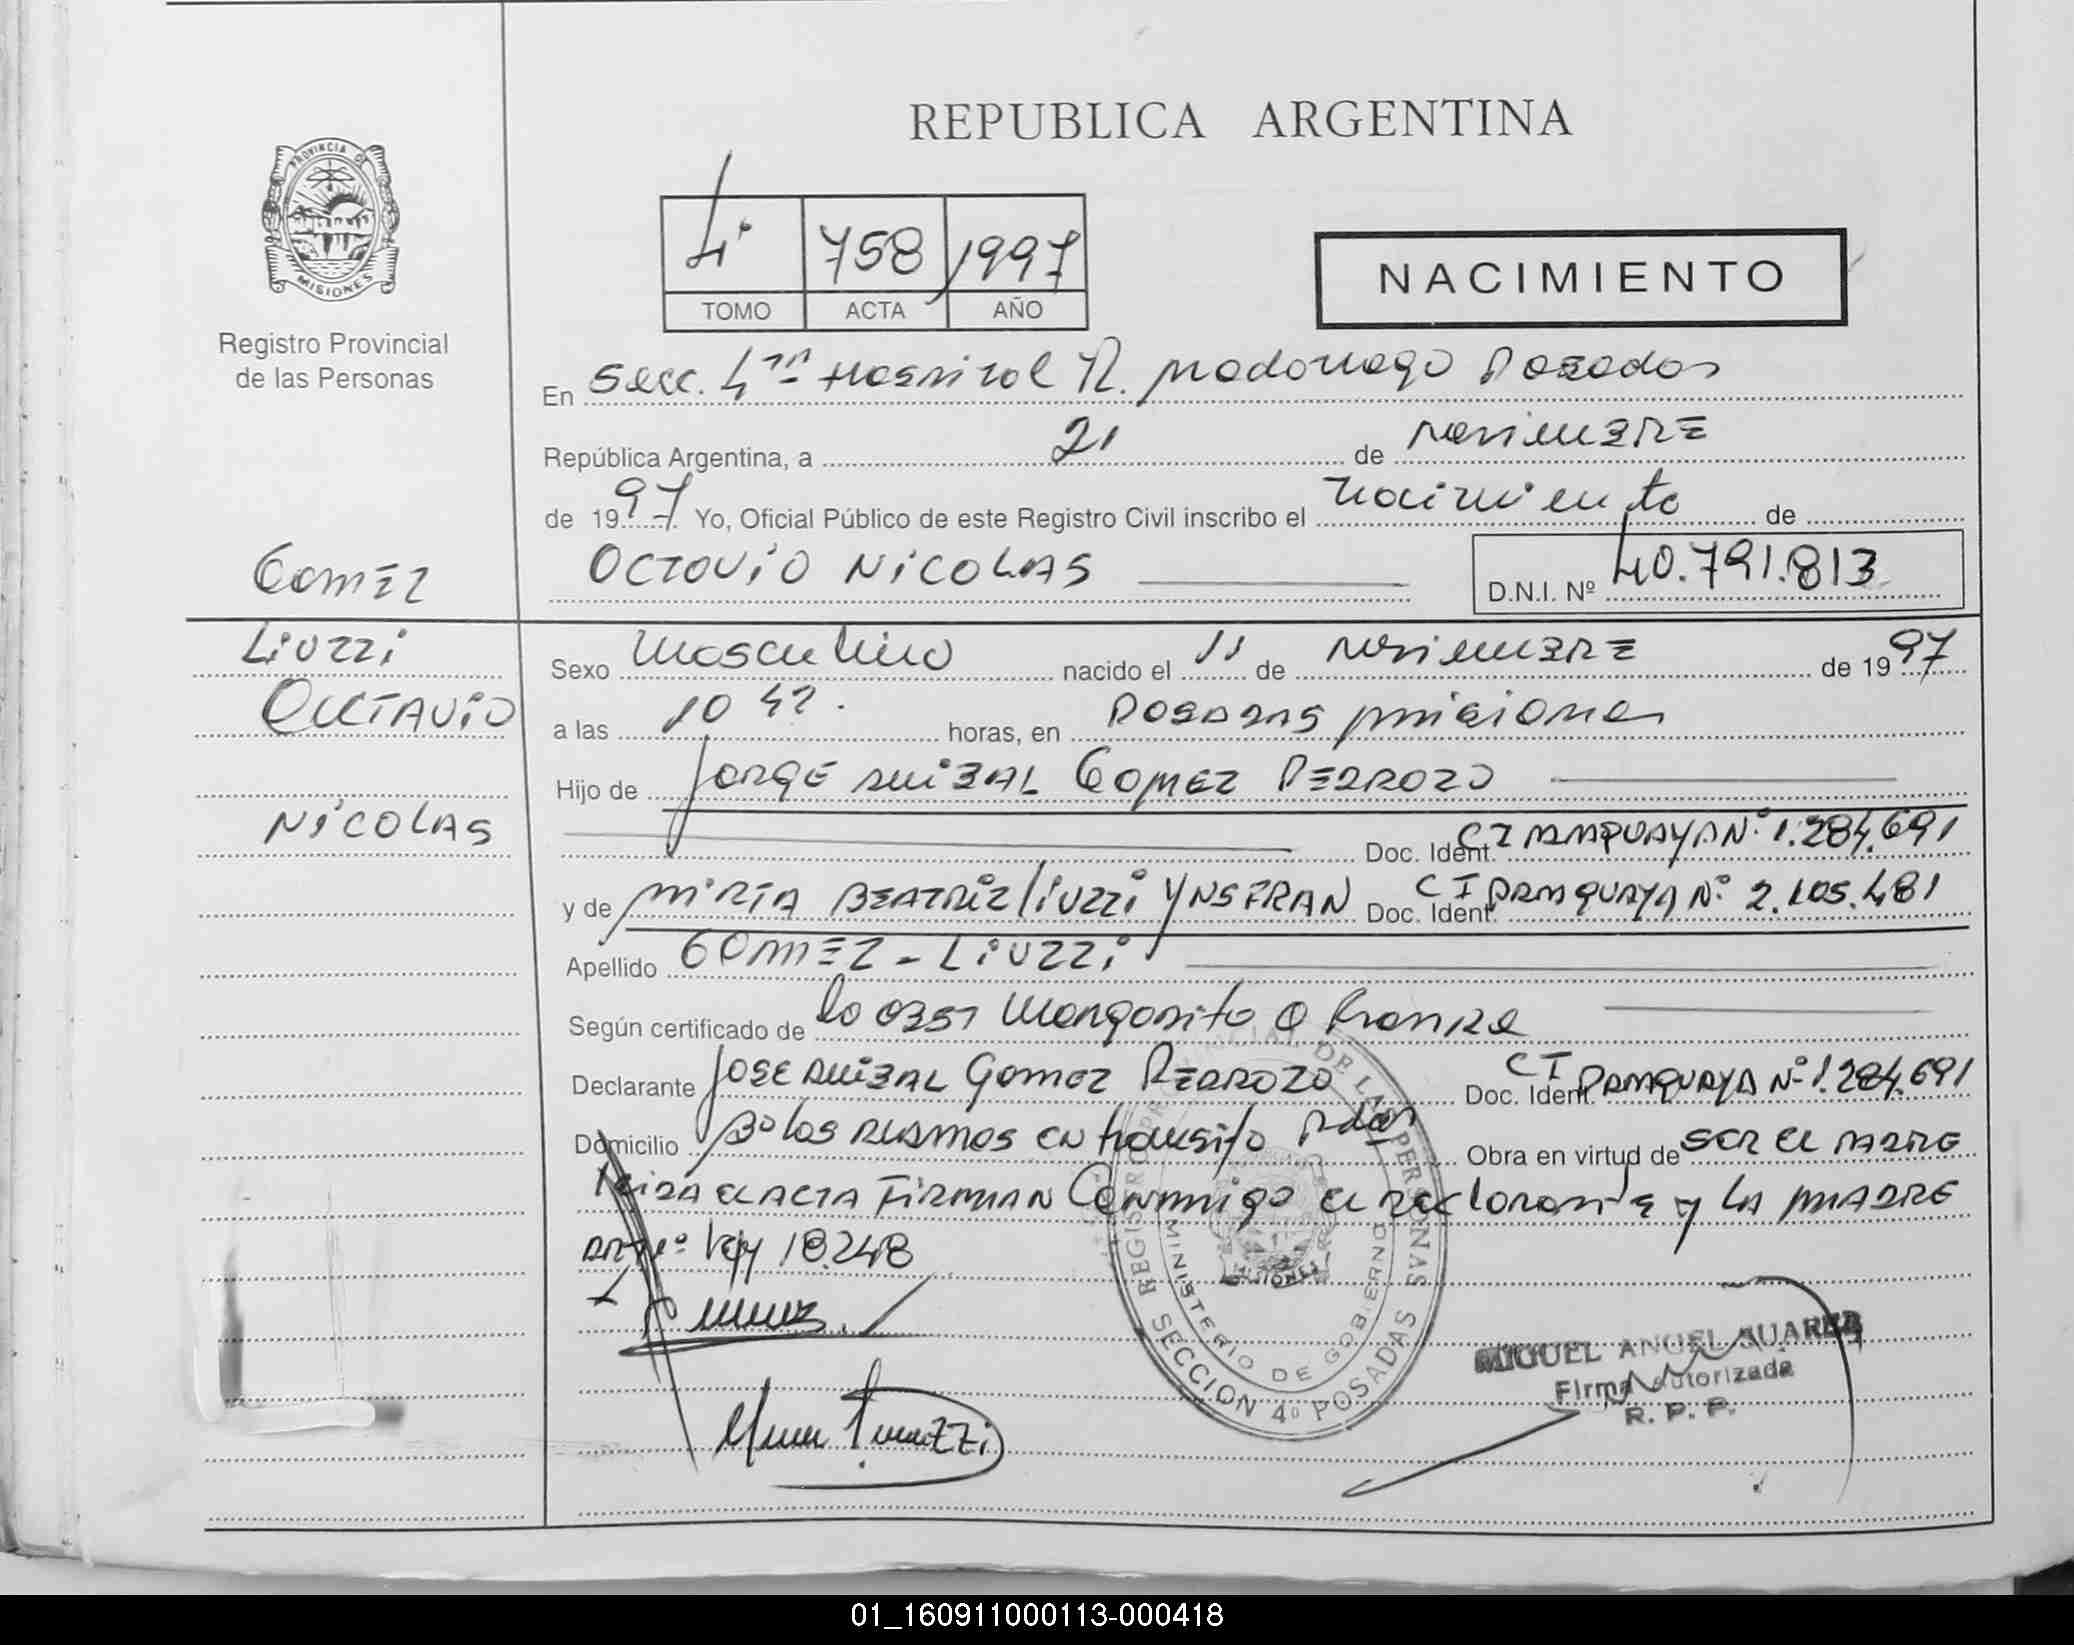 REPUBLICA ARGENTINA
PROVINCIA DE
MISIONES
Registro Provincial
de las Personas
4º 758 1997
TOMO ACTA AÑO
NACIMIENTO
En Secc. 4ta Hospital R. Madariaga Posadas
República Argentina, a 21 de Noviembre
de 1997 Yo, Oficial Público de este Registro Civil inscribo el nacimiento de
OCTAVIO NICOLAS
D.N.I. Nº 40.791.813
GOMEZ
LIUZZI
OCTAVIO
NICOLAS
Sexo Masculino nacido el 11 de Noviembre de 1997
a las 10 42. horas, en Posadas Misiones
Hijo de JORGE ANIBAL GOMEZ PEDROZO
Doc. Ident. CI PARAGUAYA Nº 1.284.691
y de MIRTA BEATRIZ LIUZZI YNSFRAN Doc. Ident. CI PARAGUAYA Nº 2.105.481
Apellido GOMEZ - LIUZZI
Según certificado de la Obst Margarita
Declarante JOSE ANIBAL GOMEZ PEDROZO Doc. Ident. CI PARAGUAYA Nº 1.284.691
Domicilio Bº LOS en transito Pdas Obra en virtud de SER EL PADRE
Leida EL ACTA FIRMAN Conmigo el declarante y LA MADRE
ley 18.248
REGISTRO PROVINCIAL DE LAS PERSONAS
MINISTERIO DE GOBIERNO
MISIONES
SECCION 4º POSADAS
MIGUEL ANGEL SUAREZ
Firma Autorizada
R. P. P.
01_160911000113-000418